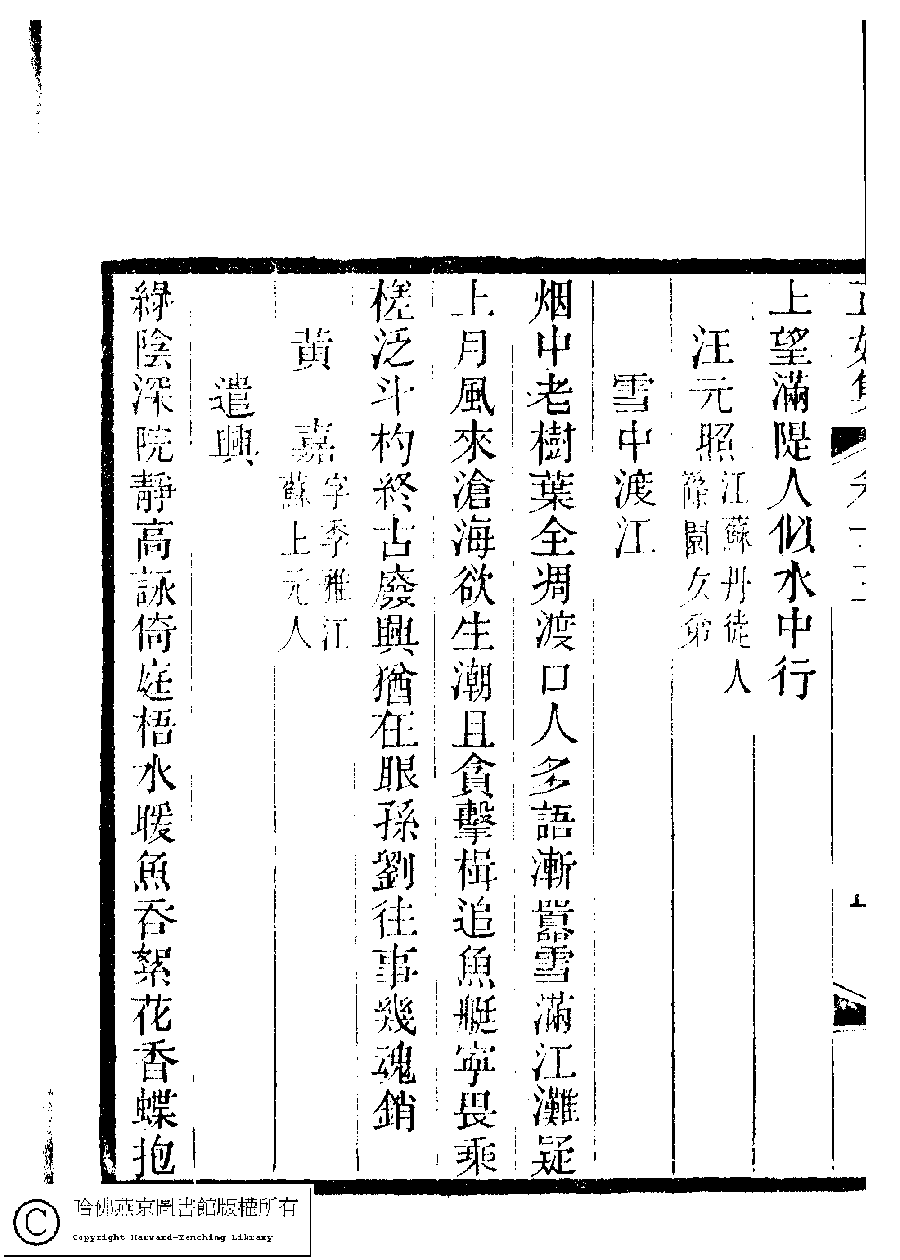 正始集 卷十二
上望滿隄人似水中行
汪元照 江蘇丹徒人
篠園女弟
雪中渡江
烟中老樹葉全凋渡口人多語漸囂雪滿江灘疑
上月風來滄海欲生潮且貪擊楫追魚艇寧畏乘
槎泛斗杓終古廢興猶在眼孫劉往事幾魂銷
黄嘉 字季雅江
蘇上元人
遣興
綠陰深院靜高詠倚庭梧水暖魚吞絮花香蝶抱
哈佛燕京圖書館版權所有
Copyright Harvard-Yenching Library